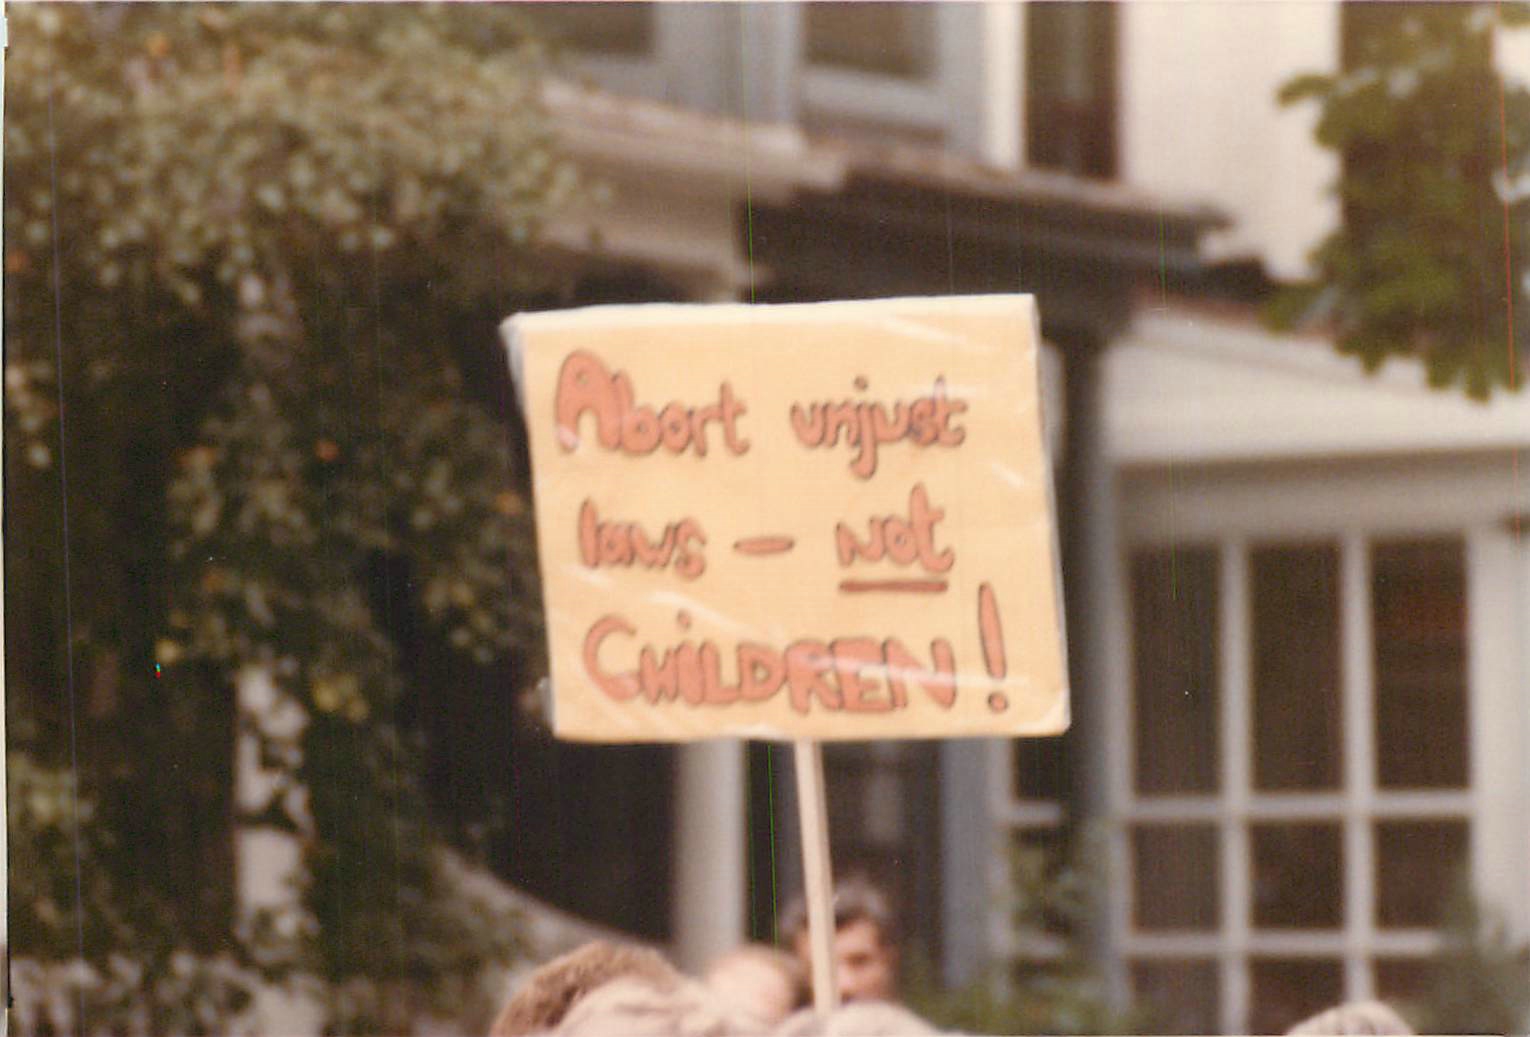 Abort unjust
laws - not
CHiLDREN!